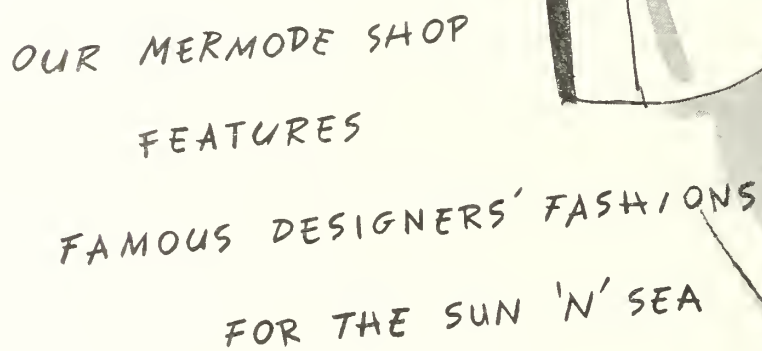 OUR MERMODE SHOP
FEATURES
FAMOUS DESIGNERS' FASHIONS
FOR THE SUN 'N' SEA